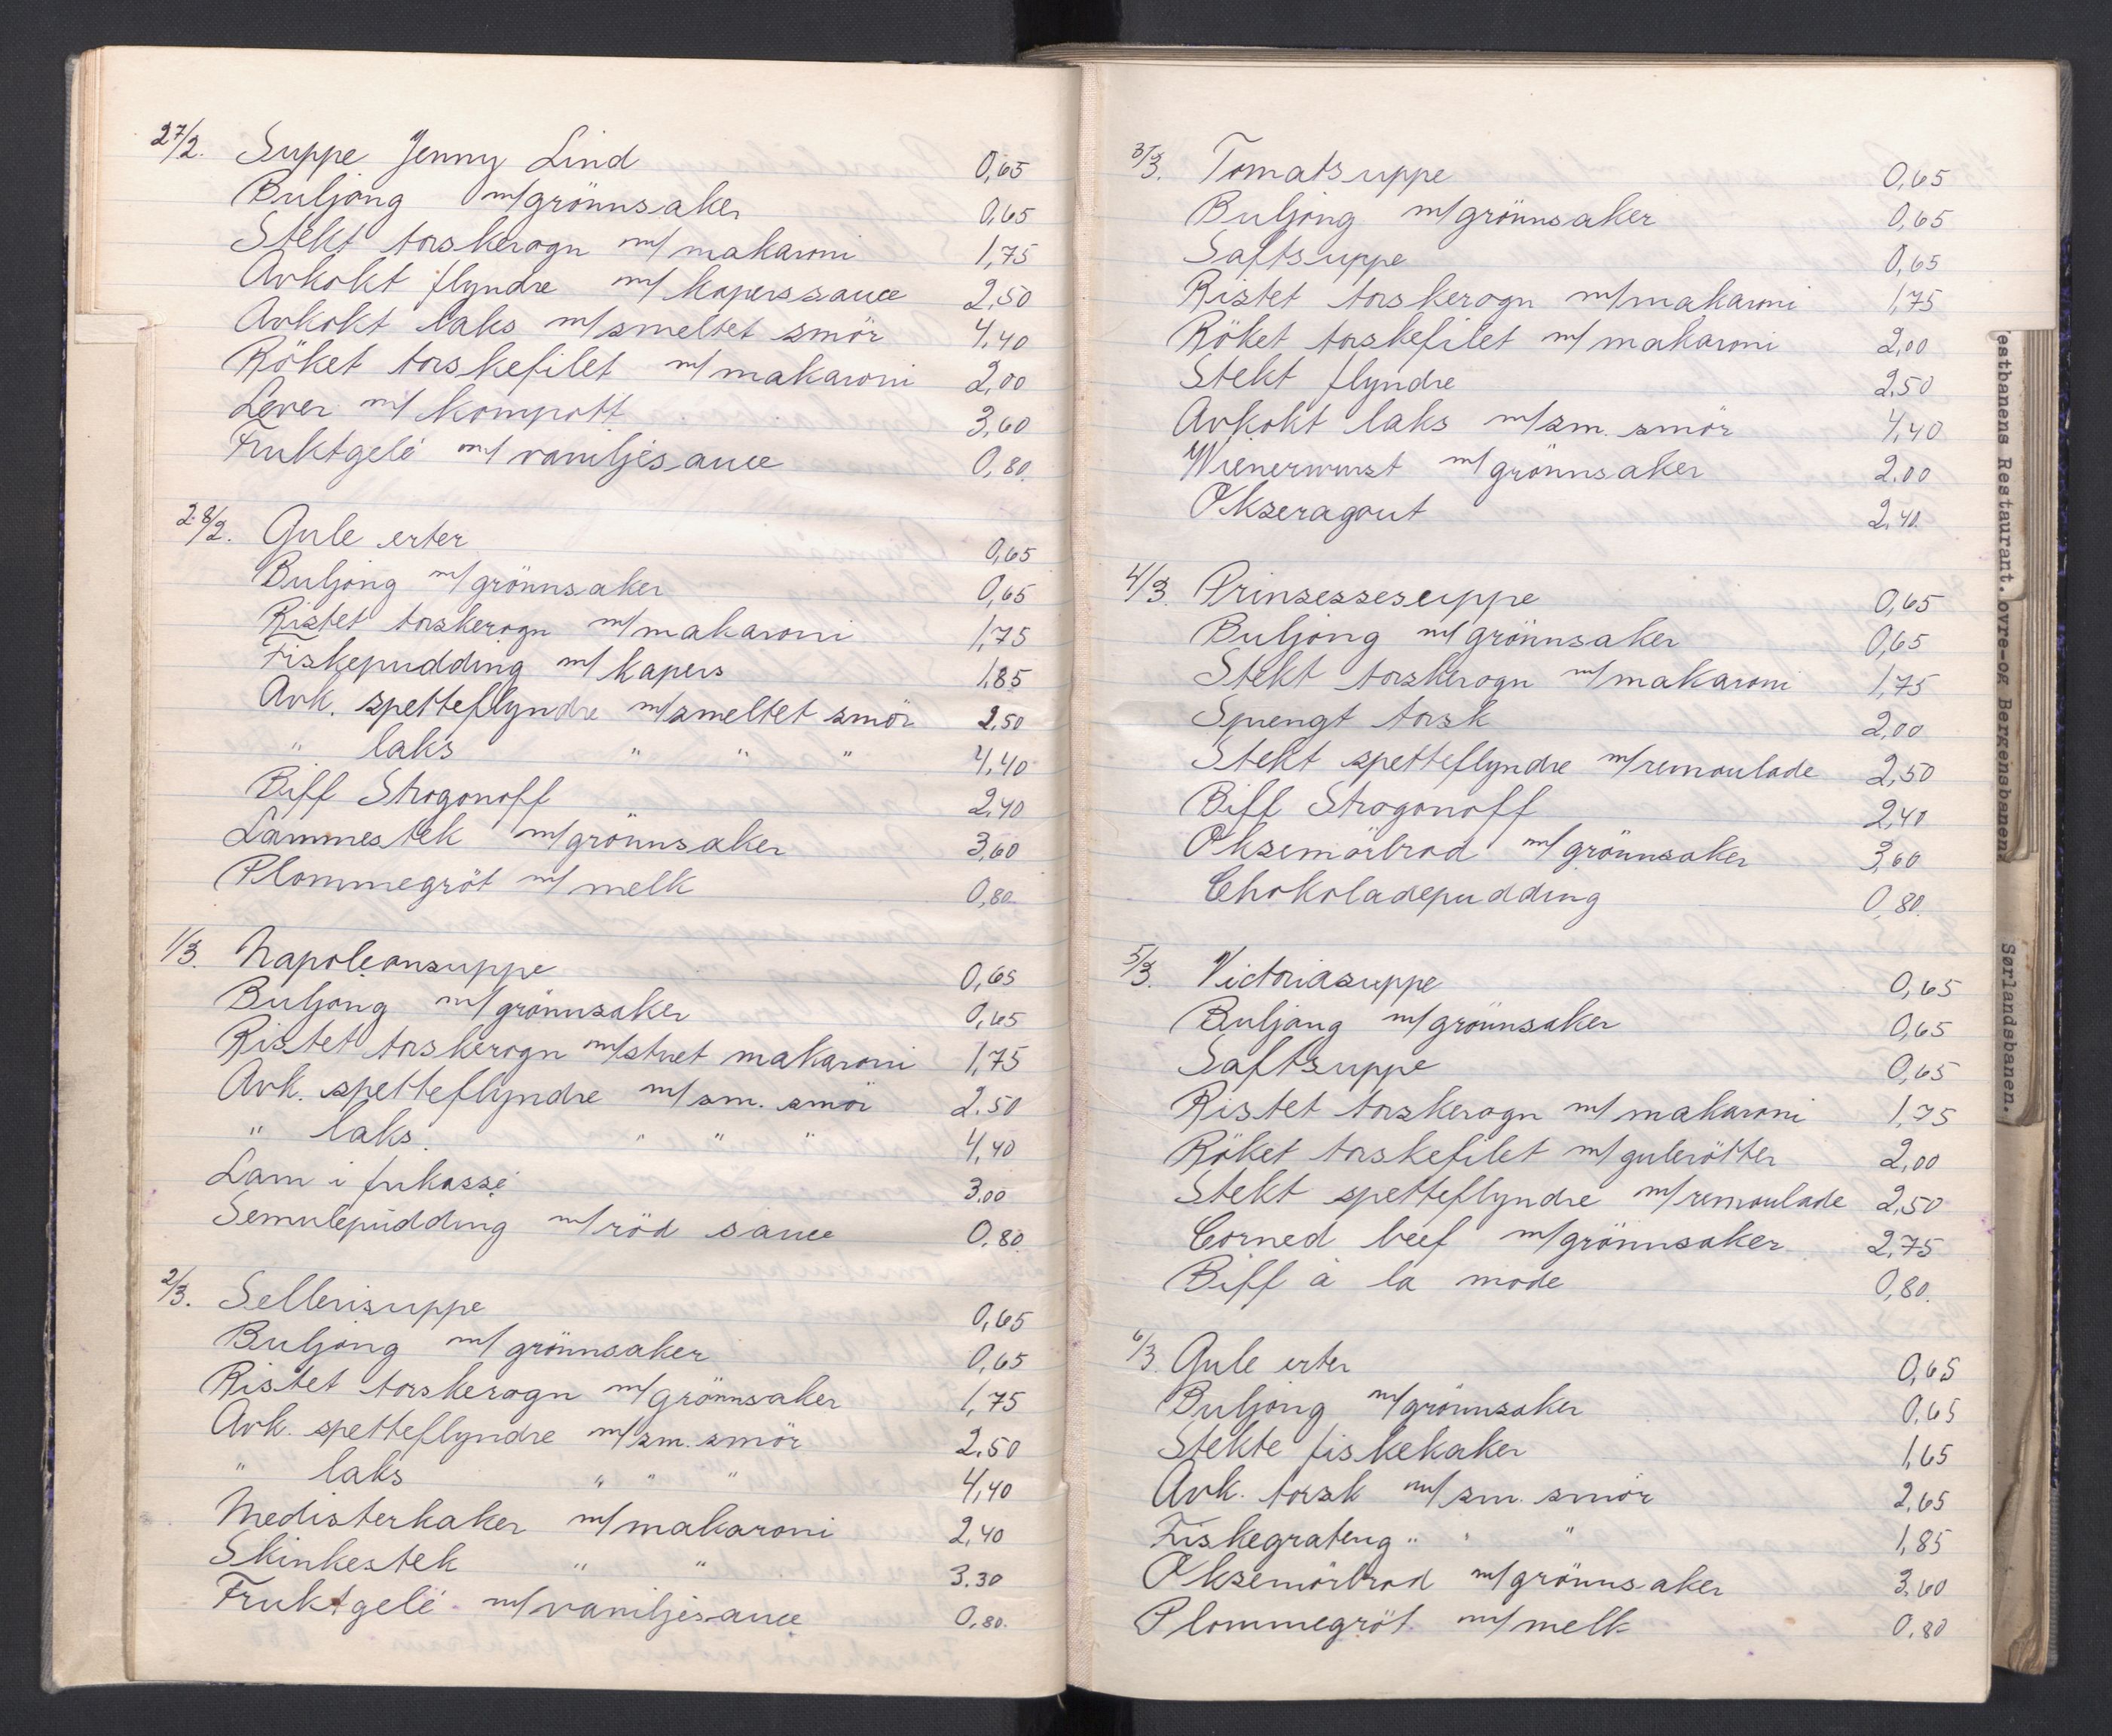 27/2. Suppe Jenny Lind 0,65
Buljong m/grönnsaker 0,65
Stekt torskerogn m/makaroni 1,75
Avkokt flyndre m/kaperssauce 2,50
Avkokt laks m/smeltet smör 4,40
Röket torskefilet m/makaroni 2,00
Lever m/kompott 3,60
Fruktgelé m/vaniljesauce 0,80.
28/2. Gule erter 0,65
Buljong m/grönnsaker 0,65
Ristet torskerogn m/makaroni 1,75
Fiskepudding m/kapers 1.85
Avk. spetteflyndre m/smeltet smör 2,50
" laks " " " 4,40
Biff Strogonoff 2,40
Lammestek m/grönnsaker 3,60
Plommegröt m/melk 0,80.
1/3. Napoleonsuppe 0,65
Buljong m/grönnsaker 0,65
Ristet torskerogn m/stuet makaroni 1,75
Avk. spetteflyndre m/sm. smör 2.50
" laks " " " 4,40
Lam i frikassé 3.00
Semulepudding m/röd sauce 0.80.
2/3. Sellerisuppe 0,65
Buljong m/grönnsaker 0,65
Ristet torskerogn m/grönnsaker 1,75
Avk. spetteflyndre m/sm. smör 2.50
" laks " " " 4,40
Medisterkaker m/makaroni 2,40
Skinkestek " " 3.30
Fruktgelé m/vaniljesauce 0,80.
3/3. Tomatsuppe 0,65
Buljong m/grönnsaker 0,65
Saftsuppe 0,65
Ristet torskerogn m/makaroni 1,75
Röket torskefilet m/makaroni 2,00
Stekt flyndre 2,50
Avkokt laks m/sm. smör 4,40
Wienerwurst m/grönnsaker 2.00
Okseragout 2,40.
4/3. Prinsessesuppe 0,65
Buljong m/grönnsaker 0,65
Stekt torskerogn m/makaroni 1,75
Sprengt torsk 2,00
Stekt spetteflyndre m/remoulade 2,50
Biff Strogonoff 2,40
Oksemörbrad m/grönnsaker 3,60
Chokoladepudding 0,80.
5/3. Victoriasuppe 0,65
Buljong m/grönnsaker 0,65
Saftsuppe 0,65
Ristet torskerogn m/makaroni 1,75
Röket torskefilet m/gulerötter 2,00
Stekt spetteflyndre m/remoulade 2,50
Corned beef m/grönnsaker 2,75
Biff à la mode 0,80.
6/3. Gule erter 0,65
Buljong m/grönnsaker 0,65
Stekte fiskekaker 1,65
Avk. torsk m/sm. smör 2,65
Fiskegrateng " " " 1,85
Oksemörbrad m/grönnsaker 3.60
Plommegröt m/melk 0.80
estbanens Restaurant.
ovre-og Bergensbanen.
Sørlandsbanen.